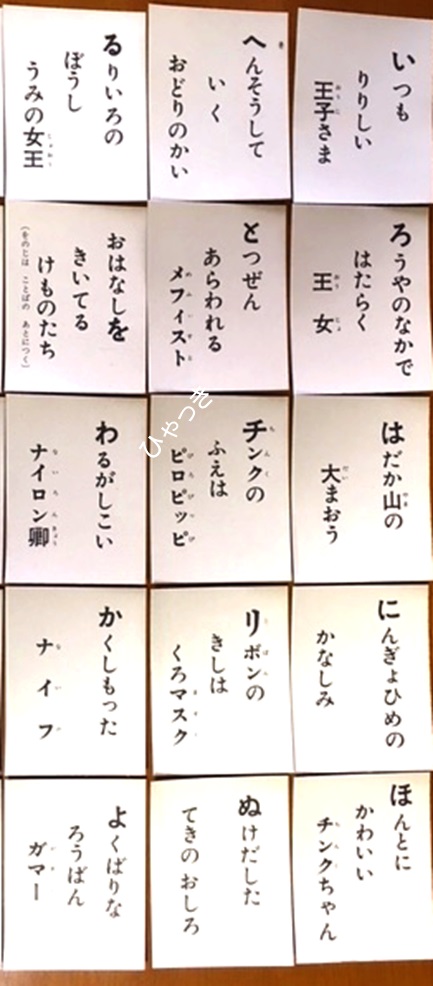 いつも
りりしい
王子さま
ろうやのなかで
はたらく
王女
はだか山の
大まおう
にんぎょひめの
かなしみ
ほんとに
かわいい
チンクちゃん
へんそうして
いく
おどりのかい
とつぜん
あらわれる
メフィスト
チンクの
ふえは
ピロピッピ
リボンの
きしは
くろマスク
ぬけだした
てきのおしろ
るりいろの
ぼうし
うみの女王
おはなしを
きいてる
けものたち
(をのじは ことばの あとにつく)
わるがしこい
ナイロン卿
かくしもった
ナイフ
よくばりな
ろうばん
ガマー
ひゃっき